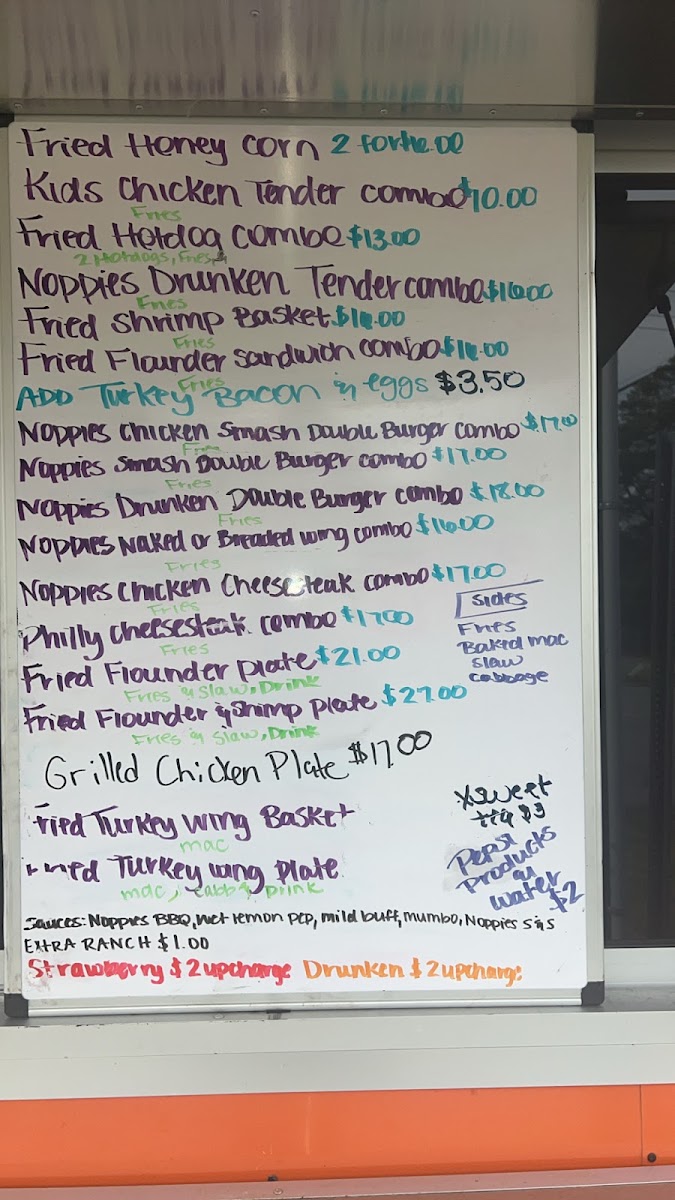 Fried Honey corn 2 for
Kids Chicken Tender combo $10.00
Fries
Fried Hotdog combo $13.00
2 Hotdogs, Fries
Noppies Drunken Tender combo $16.00
Fries
Fried Shrimp Basket
Fries
Fried Flounder sandwich combo
Fries
ADD Turkey Bacon & eggs $3.50
Noppies Chicken Smash Double Burger combo $17.00
Fries
Noppies Smash Double Burger combo $17.00
Fries
Noppies Drunken Double Burger combo $18.00
Fries
Noppies Naked or Breaded wing combo $16.00
Fries
Noppies Chicken Cheesesteak combo $17.00
Fries
Philly cheesesteak combo $17.00
Fries
Fried Flounder plate $21.00
Fries & Slaw, Drink
Fried Flounder & Shrimp plate $27.00
Fries & Slaw, Drink
Grilled Chicken Plate $17.00
Fried Turkey Wing Basket
mac
Fried Turkey wing Plate
mac, cabb & Drink
Sides
Fries
Baked mac
slaw
cabbage
*sweet
tea $3
Pepsi
Products
&
water
$2
Sauces: Noppies BBQ, hot lemon pep, mild buff, mumbo, Noppies
EXTRA RANCH $1.00
Strawberry $2 upcharge Drunken $2 upcharge